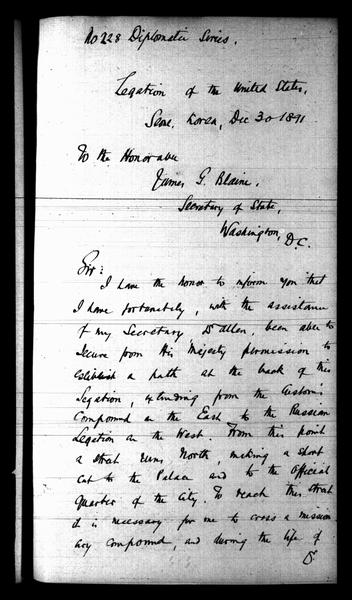 No 228 Diplomatic Series.
Legation of the United States,
Seoul, Korea, Dec 30 1891
To the Honorable
James G. Blaine,
Secretary of State,
Washington,
D.C.
Sir:
I have the honor to inform you that
I have fortunately, with the assistance
of my Secretary Dr Allen, been able to
secure from His Majesty permission to
establish a path at the back of this
Legation, extending from the Customs
Compound on the East to the Russian
Legation on the West. From this point
a street runs North, making a short
cut to the Palace and to the Official
Quarter of the City. To reach this street
it is necessary for me to cross a mission
ary compound, and during the life of
Dr